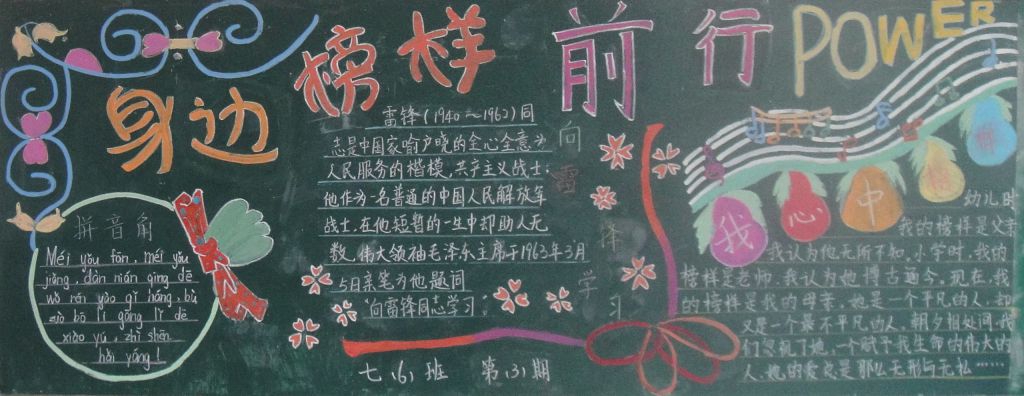 身边
榜样
前行
POWER
拼音角
Méi yǒu fān, méi yǒu
jiǎng, dàn nián qīng dē
wǒ rén yào qǐ háng, bù
zuò bō lí gāng lǐ dē
xiǎo yú, zhǐ shēn
hǎi yáng!
雷锋(1940～1962)同
志是中国家喻户晓的全心全意为
人民服务的楷模,共产主义战士,
他作为一名普通的中国人民解放军
战士,在他短暂的一生中却助人无
数,伟大领袖毛泽东主席于1963年3月
5日亲笔为他题词
"向雷锋同志学习"。
向雷锋学习
七、(6)班 第(3)期
我心中
幼儿时
我的榜样是父亲
我认为他无所不知。小学时,我的
榜样是老师,我认为他博古通今。现在,我
的榜样是我的母亲,她是一个平凡的人,却
又是一个最不平凡的人。朝夕相处间,我
们忽视了她,一个赋予我生命的伟大的
人,她的爱总是那么无形与无私……